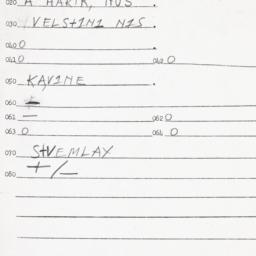 020 A HARIK, NUS .
030 VELSTINI NIS .
040 O .
041 O 042 O
050 KAVINE .
060 +
061 — 062 O
063 O 064 O
070 STVEMLAY
080 +/-